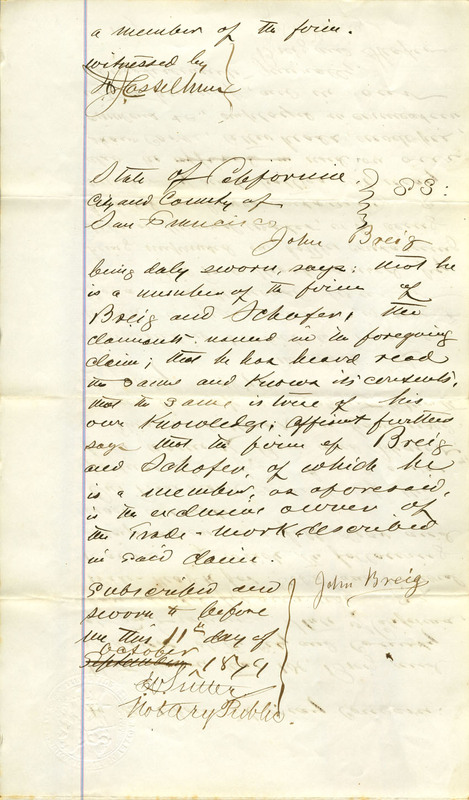 a member of the firm.
witnessed by
State of California
City and County of
San Francisco
SS:
John Breig
being duly sworn, says; that he
is a member of the firm of
Breig and Schafer, the
claimants, named in the foregoing
claim; that he has heard read
the same and knows its contents,
that the same is true of his
own knowledge; affiant further
says that the firm of Breig
and Schafer, of which he
is a member, as aforesaid,
is the exclusive owner of
the Trade-mark described
in said claim.
Subscribed and
sworn to before
me this 11th day of
October
September 1879
Notary Public.
John Breig